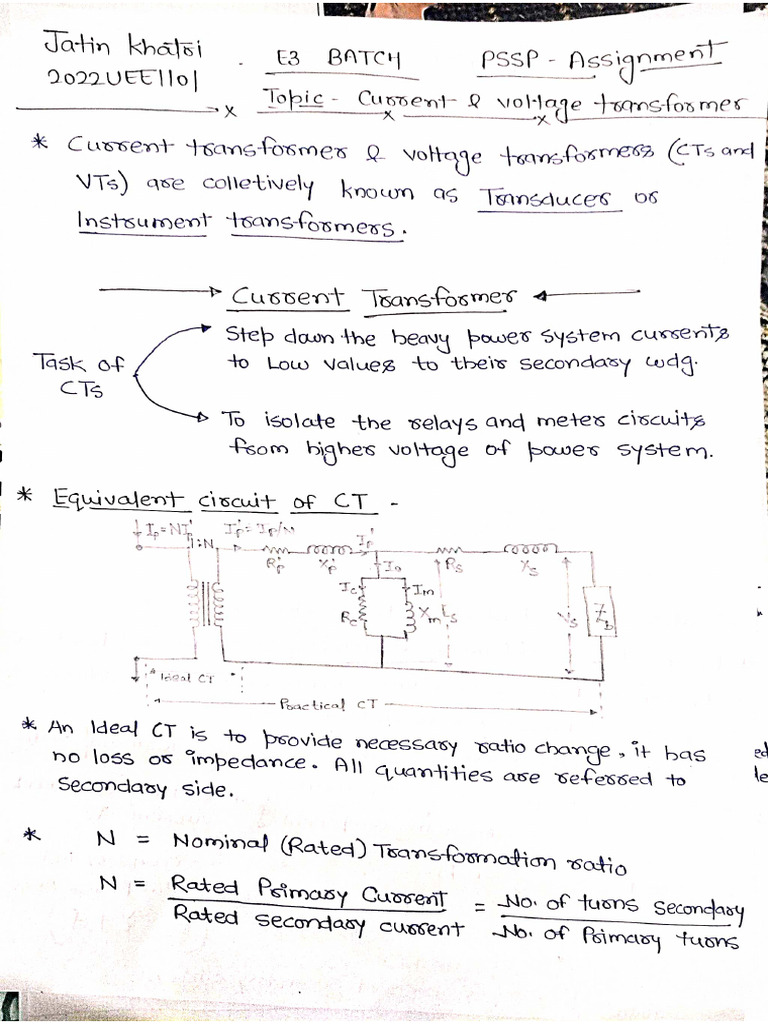 Jatin Khatri
2022UEE1101
E3 BATCH
PSSP - Assignment
Topic - Current & voltage transformer
* Current transformer & voltage transformers (CTs and
VTs) are colletively known as Transducer or
Instrument transformers.
Current Transformer
Task of
CTs
Step down the heavy power system currents
to Low values to their secondary wdg.
To isolate the relays and meter circuits
from higher voltage of power system.
* Equivalent circuit of CT -
Ip=NI'p
I'p=Ip/N
I'p
1:N
R'p
X'p
Io
Rs
Xs
Ic
Im
Rc
Xm
Es
Vs
Zb
Ideal CT
Practical CT
* An Ideal CT is to provide necessary ratio change, it has
no loss or impedance. All quantities are referred to
Secondary side.
* N = Nominal (Rated) Transformation ratio
N = Rated Primary Current / Rated secondary current = No. of turns secondary / No. of Primary turns
ed
le